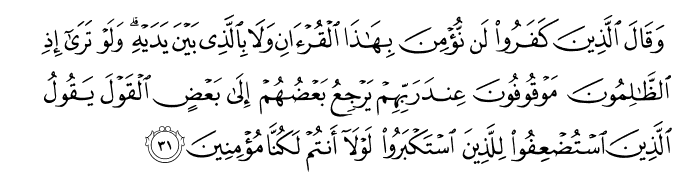 وَقَالَ ٱلَّذِينَ كَفَرُوا۟ لَن نُّؤْمِنَ بِهَـٰذَا ٱلْقُرْءَانِ وَلَا بِٱلَّذِى بَيْنَ يَدَيْهِ ۗ وَلَوْ تَرَىٰٓ إِذِ
ٱلظَّـٰلِمُونَ مَوْقُوفُونَ عِندَ رَبِّهِمْ يَرْجِعُ بَعْضُهُمْ إِلَىٰ بَعْضٍ ٱلْقَوْلَ يَقُولُ
ٱلَّذِينَ ٱسْتُضْعِفُوا۟ لِلَّذِينَ ٱسْتَكْبَرُوا۟ لَوْلَآ أَنتُمْ لَكُنَّا مُؤْمِنِينَ ٣١